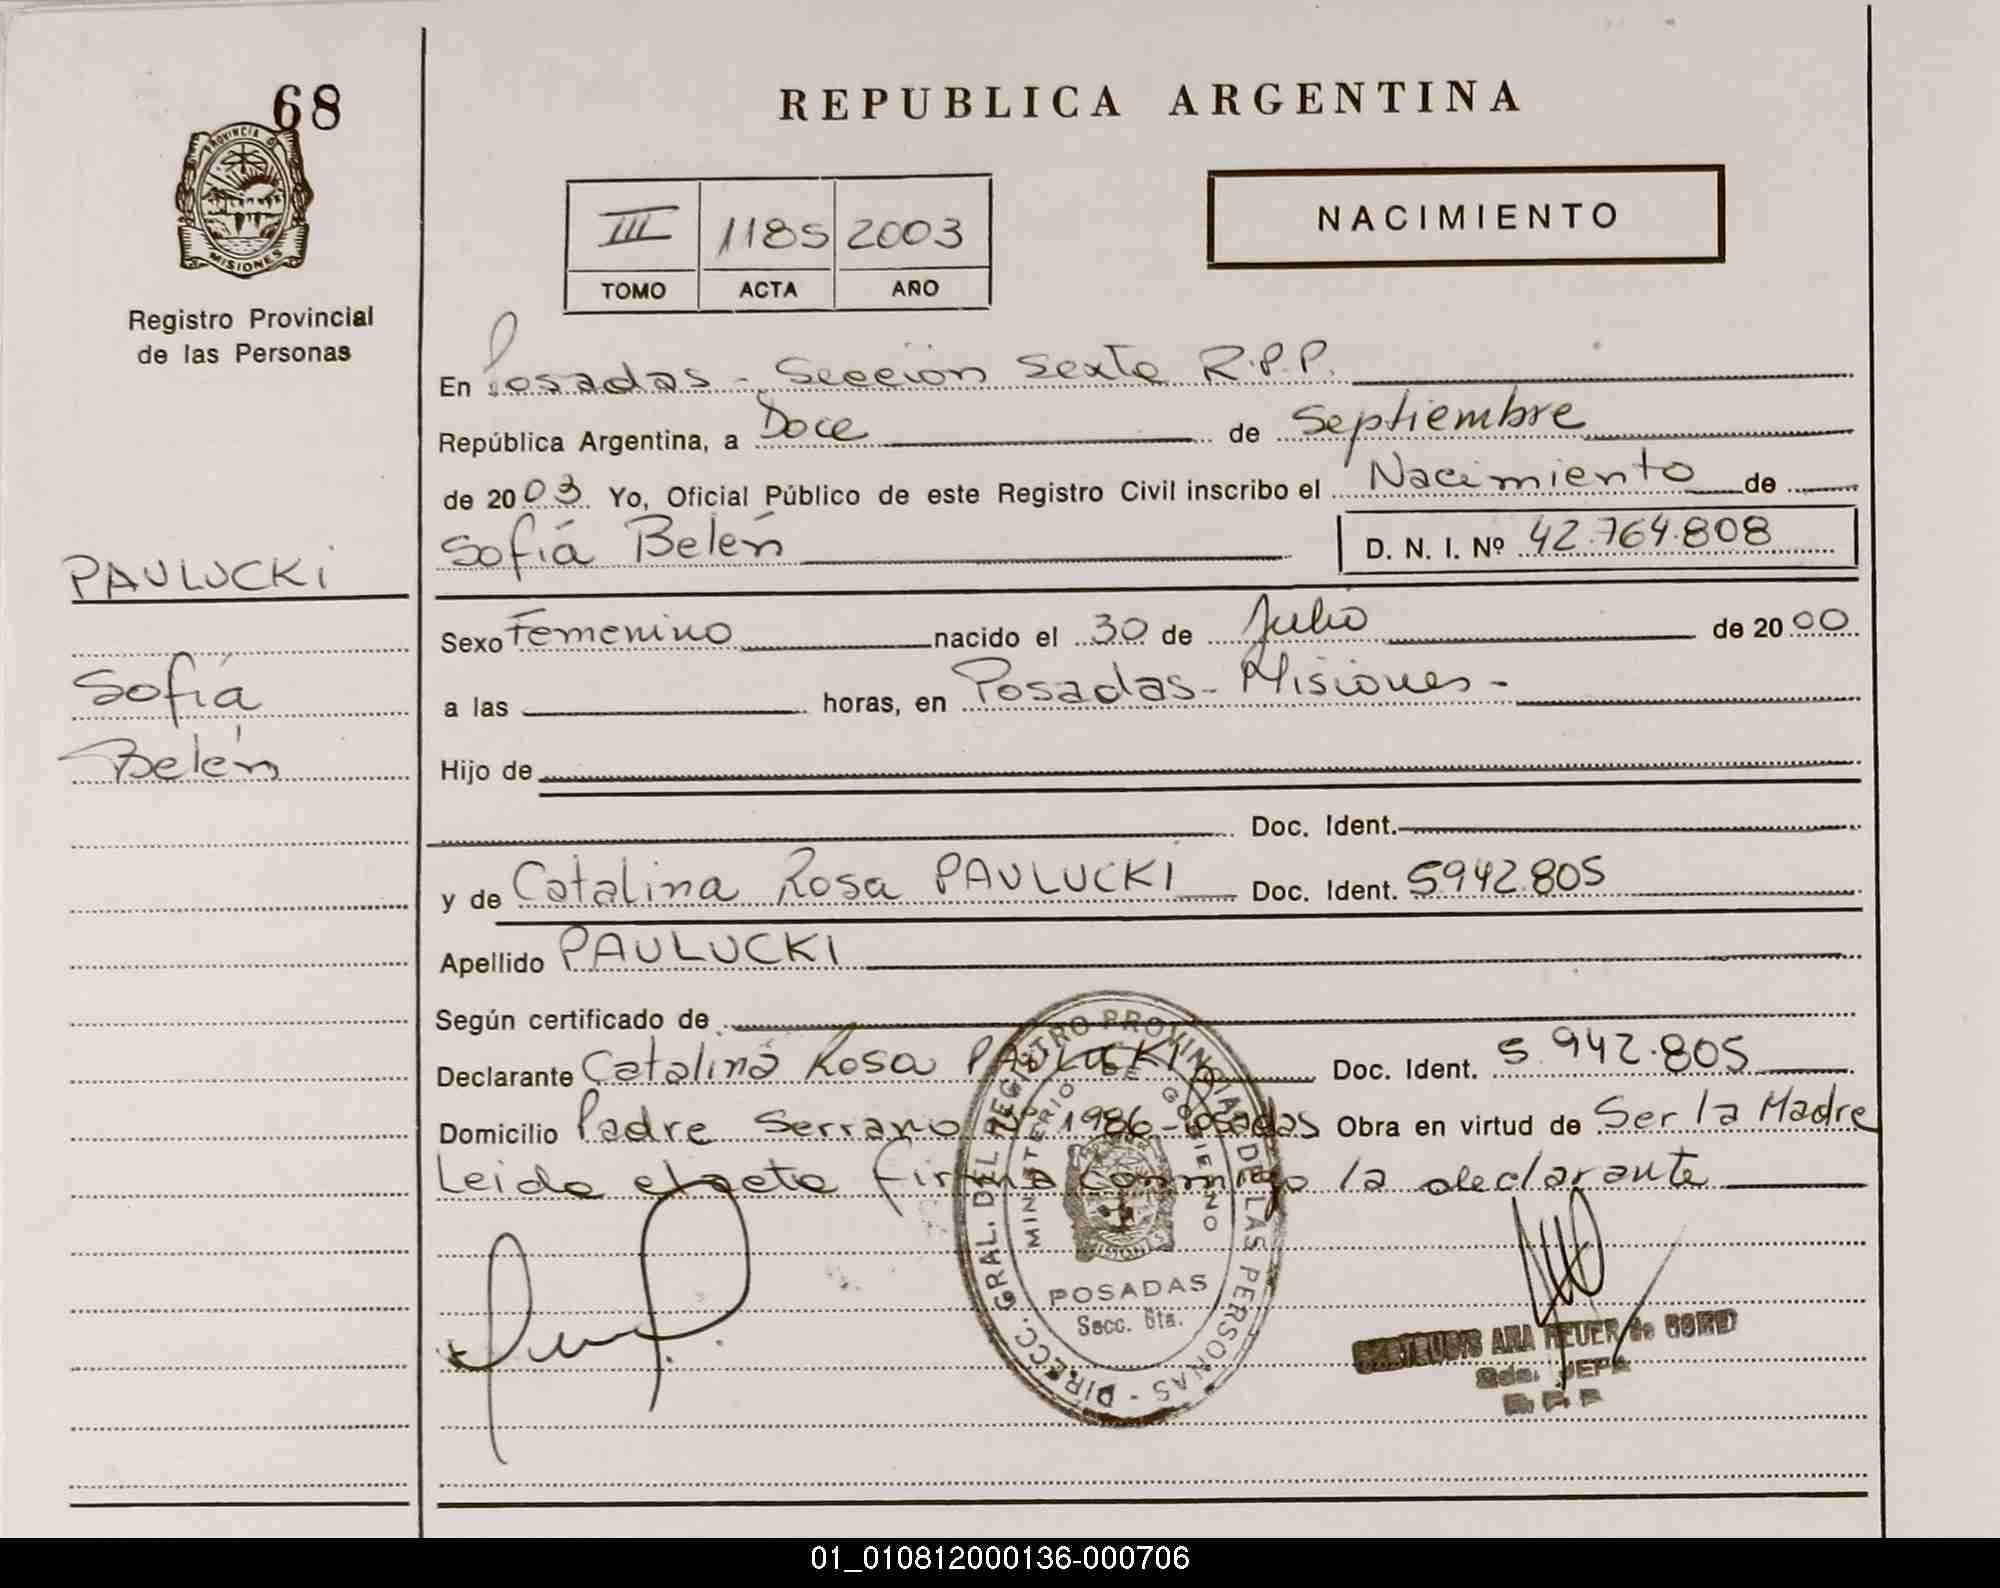 68
PROVINCIA DE
MISIONES
Registro Provincial
de las Personas
PAULUCKI
Sofía
Belén
REPUBLICA ARGENTINA
III 1185 2003
TOMO ACTA AÑO
NACIMIENTO
En Posadas - Sección Sexta R.P.P.
República Argentina, a Doce de Septiembre
de 2003. Yo, Oficial Público de este Registro Civil inscribo el Nacimiento de
Sofiá Belén D. N. I. Nº 42.764.808
Sexo Femenino nacido el 30 de Julio de 2000
a las horas, en Posadas - Misiones -
Hijo de
Doc. Ident.
y de Catalina Rosa PAULUCKI Doc. Ident. 5942.805
Apellido PAULUCKI
Según certificado de
Declarante Catalina Rosa PAULUCKI Doc. Ident. 5.942.805
Domicilio Padre Serrano Nº 1986 - Posadas Obra en virtud de Ser la Madre
Leida el acta firma conmigo la declarante
DIRECC. GRAL. DEL REGISTRO PROVINCIAL DE LAS PERSONAS -
MINISTERIO DE GOBIERNO
MISIONES
POSADAS
Secc. 6ta.
ANA HEUER de
JEFA
01_010812000136-000706